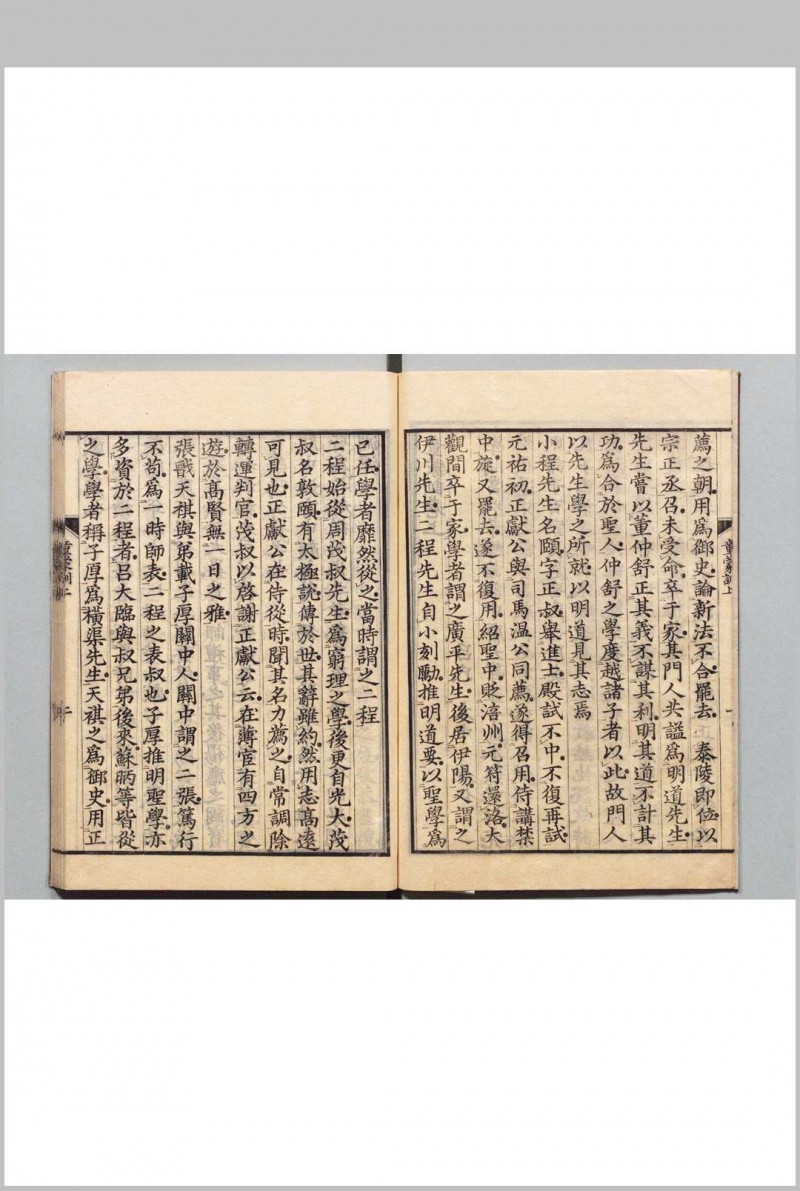 薦之朝用爲御史論新法不合罷去 泰陵即位以
宗正丞召未受命卒于家其門人共謚爲明道先生
先生嘗以董仲舒正其義不謀其利明其道不計其
功爲合於聖人仲舒之學度越諸子者以此故門人
以先生學之所就以明道見其志焉
小程先生名頤字正叔舉進士殿試不中不復再試
元祐初正獻公與司馬温公同薦遂得召用侍講禁
中旋又罷去遂不復用紹聖中貶涪州元符還洛大
觀間卒于家學者謂之廣平先生後居伊陽又謂之
伊川先生二程先生自小刻勵推明道要以聖學爲
童蒙訓上
一
已任學者靡然從之當時謂之二程
二程始從周茂叔先生爲窮理之學後更自光大茂
叔名敦頤有太極說傳於世其辭雖約然用志高遠
可見也正獻公在侍從時聞其名力薦之自常調除
轉運判官茂叔以啓謝正獻公云在薄宦有四方之
遊於高賢無一日之雅
張戩天祺與弟載子厚關中人關中謂之二張篤行
不苟爲一時師表二程之表叔也子厚推明聖學亦
多資於二程者呂大臨與叔兄弟後來蘇昞等皆從
之學學者稱子厚爲横渠先生天祺之爲御史用正
二